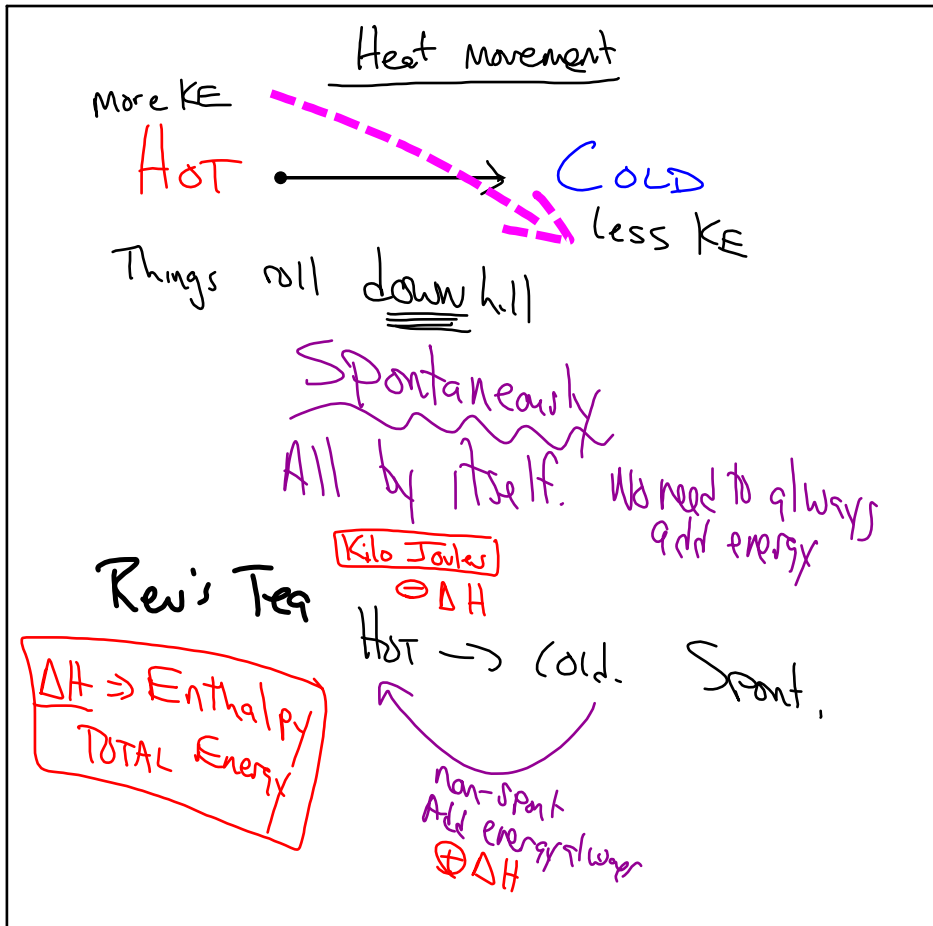 Heat movement
More KE
HOT
COLD
less KE
Things roll downhill
Spontaneously
All by itself. No need to always
add energy
Kilo Joules
⊖ ΔH
Rev's Tea
HOT → cold. Spont.
ΔH ⇒ Enthalpy
TOTAL Energy
non-spont
Add energy always
⊕ ΔH